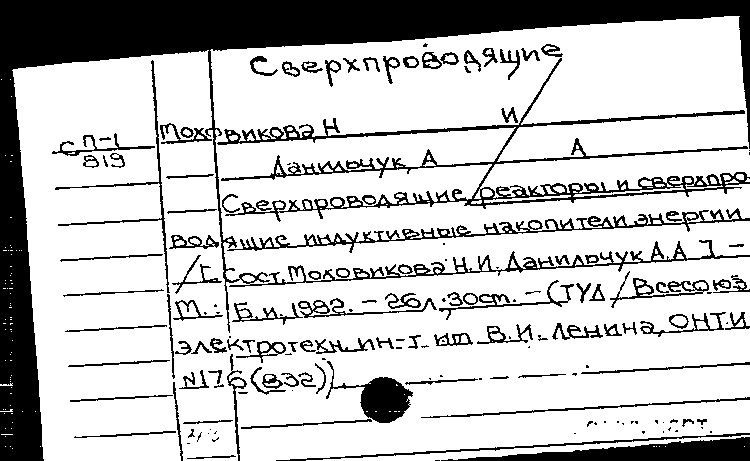 Сверхпроводящие
С П-1 Моховикова, Н И
819
Данильчук, А А
Сверхпроводящие реакторы и сверхпро
водящие индуктивные накопители энергии
/[Сост. Моховикова Н.И, Данильчук А.А ]. -
М.: Б.и, 1982. - 26л; 30ст. - (ТУД / Всесоюз
электротехн. ин-т им В.И. Ленина, ОНТИ
N176(832)).